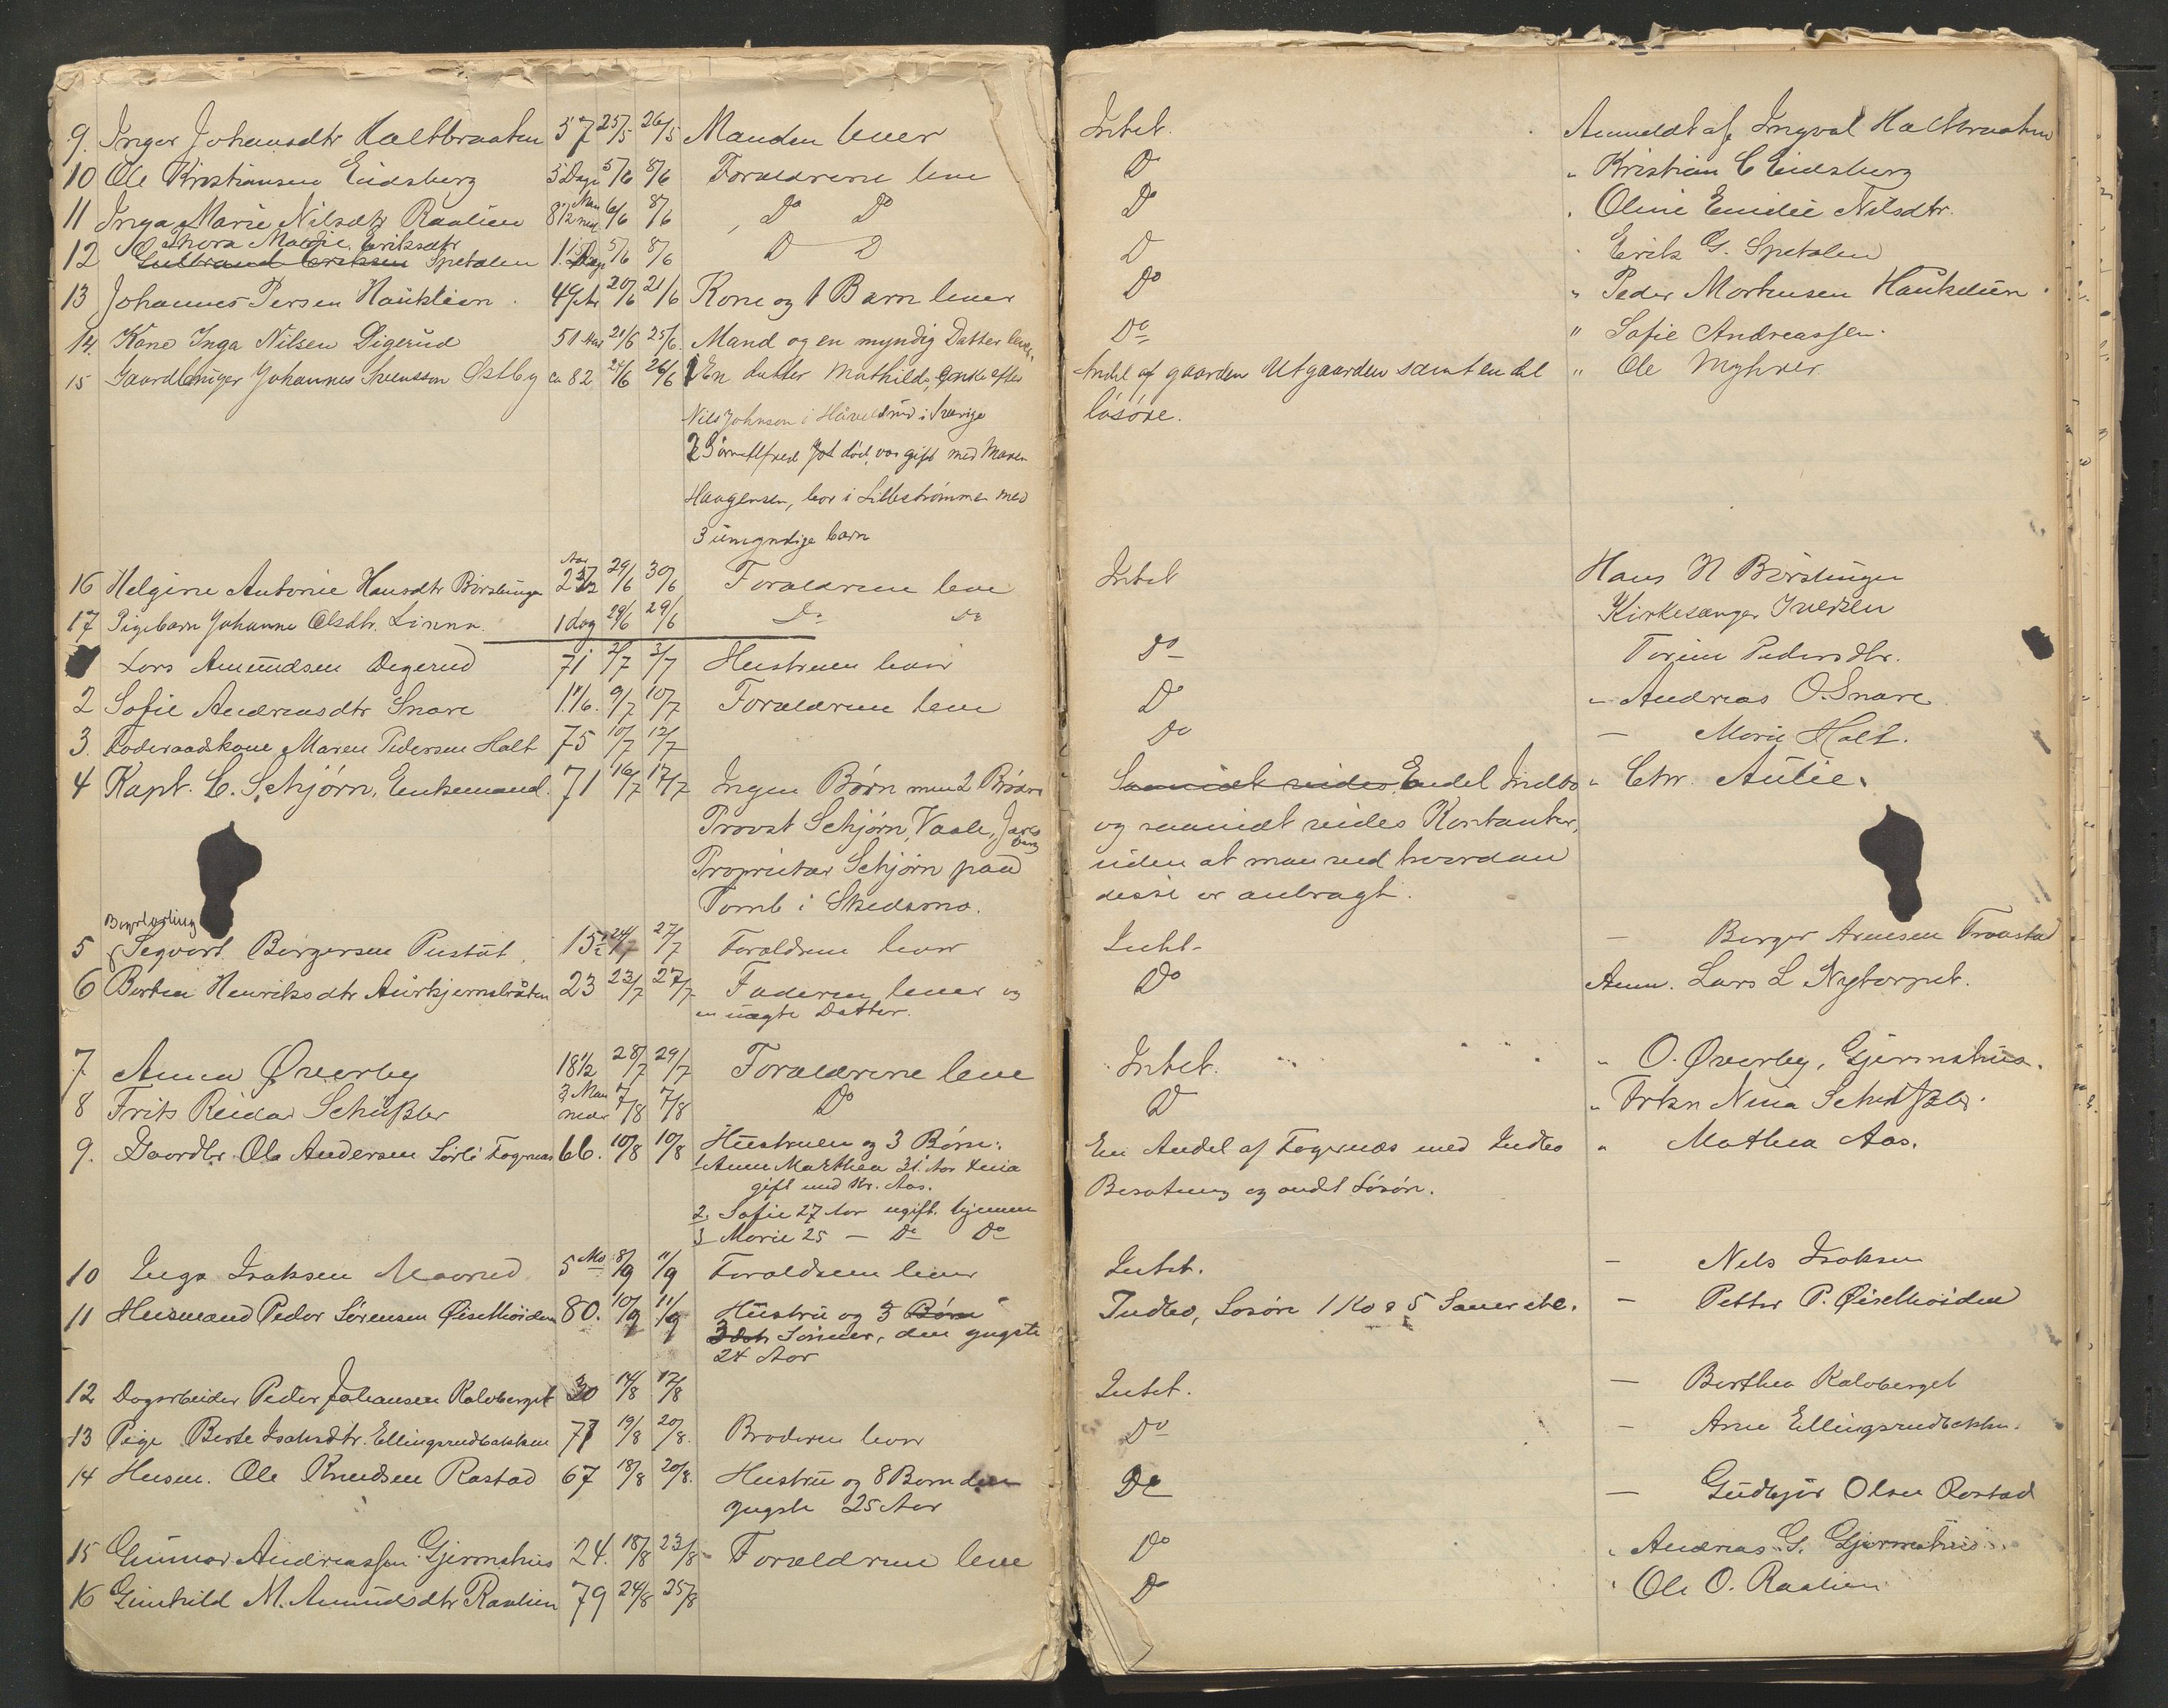 9. Inger Johansdtr Haltbraaten 57 25/5 26/5 Manden lever Intet. Anmeldt af Ingval Haltbraaten
10 Ole Kristiansen Eidsberg 5 Dage 5/6 8/6 Forældrene leve Do " Kristian C Eidsberg
11 Inga Marie Nilsdtr Raalien 8 1/2 6/6 8/6 Do Do Do " Oline Emilie Nilsdtr.
Thora Marie Eriksdtr
12 Gulbrand Eriksen Spetalen 5/6 8/6 D D D " Erik G. Spetalen
13 Johannes Persen Hauklien. 49 Aar 20/6 21/6 Kone og 1 Barn lever Do " Peder Mortensen Hauklien.
14. Kone Inga Nilsen Digerud 51 Aar 21/6 25/6. Mand og en myndig Datter lever. Do " Sofie Andreassen.
15 Gaardbruger Johannes Svensson Østby ca 82 24/6 26/6 1 En datter Mathilde, Enke efter Andel af gaarden Utgaarden samt en del " Ole Myhrer
Nils Johnson i Sverige løsøre.
2 Alfred død, var gift med Maren
Haagensen, bor i Lillestrømmen med
3 umyndige barn
16 Helgine Antonie Hansdtr Børslinger Aar 29/6 30/6 Forældrene leve Intet Hans H Børslinger
17 Pigebarn Johanne Olsdtr. Linna. 1 dag 29/6 29/6 Do Do Kirkesanger Iversen
Lars Amundsen Degerud 71 2/7 3/7 Hustruen lever Do Torine Pedersdtr.
2 Sofie Andreasdtr Snare 9/7 10/7 Forældrene leve Do " Andreas O. Snare
3. Foderaadskone Maren Pedersen Holt 75 10/7 12/7 Do — Marie Holt.
4 Kapt. C. Schjørn, Enkemand. 71 16/7 17/7 Ingen Børn men 2 Brødre Saavidt vides Endel Indbo " Chr. Aulie.
Provst Schjørn, Vaale, Jarlsberg og saavidt vides Kontanter,
Proprietær Schjørn paa uden at man ved hvordan
Tomb i Skedsmo. disse er anbragt.
5 Segvart Børgersen Pustut. 15 1/2 24/7 27/7 Forældrene lever Intet — Børger Arnesen Fraastad
6 Berthea Henriksdtr Aurkjernsbråten 23 23/7 27/7 Faderen lever og Do Anm. Lars L Nytorpet.
en uægte Datter.
7 Anna Øverby 18 1/2 28/7 29/7 Forældrene leve Intet. " O. Øverby, Gjermshus.
8 Frits Reidar Schüssler 3 Maaneder 7/8 7/8 Do D " Frkn Nina Schüssler.
9. Gaardbr. Ole Andersen Sørli Fagernæs 66. 10/8 10/8 Hustruen og 3 Børn: En Andel af Fagernæs med Indbo " Mathea Aas.
1 Anne Marthea 31 Aar
gift med Kr. Aas. Besætning og andet Løsøre.
2. Sofie 27 Aar ugift. hjemme
3 Marie 25 — Do Do
10 Inga Isaksen Maarud 5 Md 8/9 11/9 Forældrene lever Intet. — Nels Isaksen
11 Husmand Peder Sørensen Øisethøiden 80. 10/9 11/9 Hustru og 3 Børn Indbo, Løsøre 1 Ko & 5 Sauer etc. — Petter P. Øisethøiden
Sønner, den yngste
24 Aar
12 Dagarbeider Peder Johansen Kalvberget 30 14/8 17/8 Intet. — Berthea Kalvberget
13 Pige Berte Isaksdtr. Ellingsrudbakken 71 19/8 20/8. Broderen lever Do — Arne Ellingsrudbakken.
14 Husm. Ole Knudsen Rastad 67 18/8 20/8. Hustru og 8 Børn den Do — Gudbjør Olsen Rastad
yngste 25 Aar
15 Gunnar Andreassen Gjermshus 24. 18/8 23/8 Forældrene leve Do " Andreas G. Gjermshus.
16 Gunhild M. Amundsdtr Raalien 79 24/8 25/8 D " Ole O. Raalien